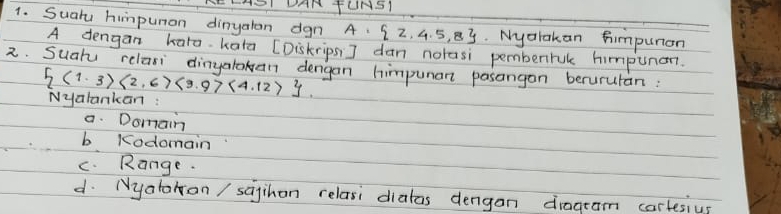 RELASI DAN FUNSI
1. Suatu himpunan dinyatan dgn A = { 2, 4, 5, 8 }. Nyatakan himpunan
A dengan kata-kata [Diskripsi] dan notasi pembentuk himpunan.
2. Suatu relasi dinyatakan dengan himpunan pasangan berurutan :
{ (1.3) (2,6) (3.9) (4.12) }.
Nyatankan :
a. Domain
b. Kodomain
c. Range.
d. Nyatakan / sajihan relasi diatas dengan diagram cartesius